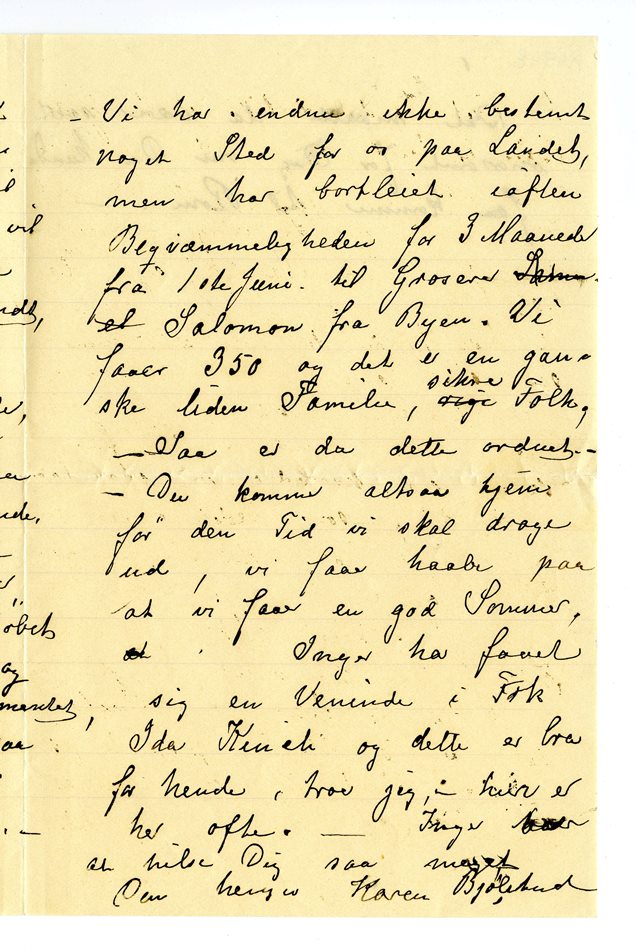 - Vi har endnu ikke bestemt
noget Sted for os paa Landet,
men har bortleiet iaften
Beqvæmmeligheden for 3 Maaneder
fra 1ste Juni til Groserer
et Salomon fra Byen. Vi
faaer 350 og det er en gan-
ske liden Familie, sikre Folk,
- Saa er da dette ordnet. -
- Du komme altsaa hjem
før den Tid vi skal drage
ud, vi faae haabe paa
at vi faaer en god Sommer,
at Inger ha faaet
sig en Veninde i Frk
Ida Kinck og dette er bra
for hende, troe jeg, - hier er
her ofte. — Inge beder
at hilse Dig saa meget
Den Karen Bjølstad
vil
ndt,
de,
nde.
øbet
og
mentet,
aa